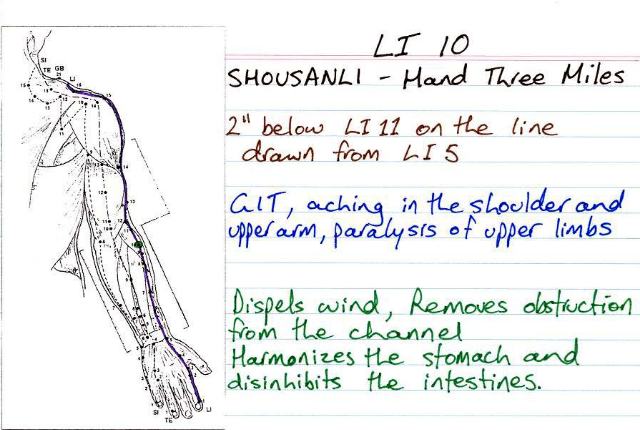 LI 10
SHOUSANLI - Hand Three Miles
2" below LI 11 on the line
drawn from LI 5
GIT, aching in the shoulder and
upper arm, paralysis of upper limbs
Dispels wind, Removes obstruction
from the channel
Harmonizes the stomach and
disinhibits the intestines.
SI
TE
GB
LI
SI
TE
LI